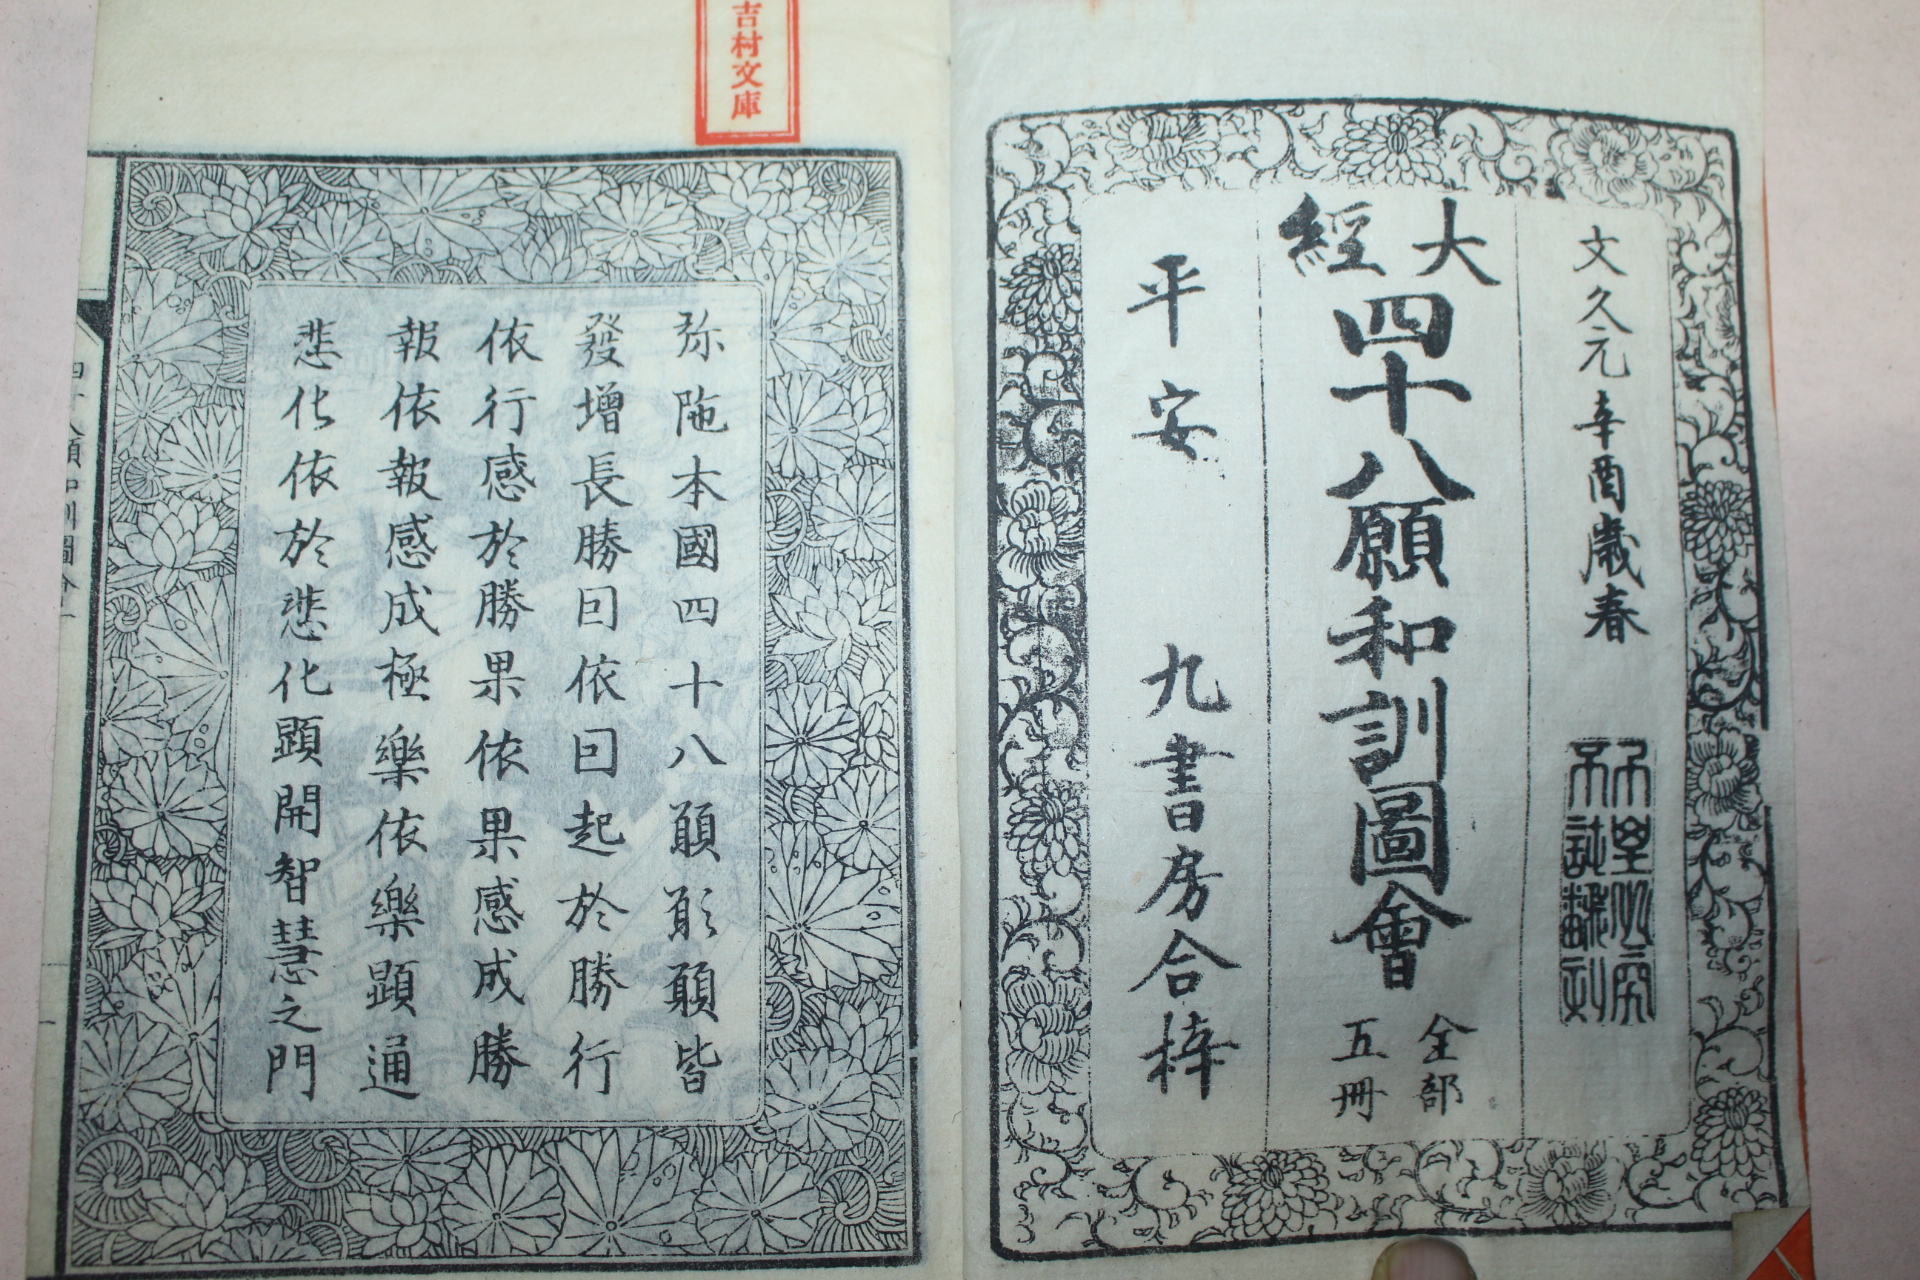 文久元辛酉歳春
千里必究
不許翻刻
大經
四十八願和訓圖會
全部
五冊
平安 九書房合梓
吉村文庫
弥陁本國四十八願願願皆
發增長勝囙依囙起於勝行
依行感於勝果依果感成勝
報依報感成極樂依樂顯通
悲化依於悲化顯開智慧之門